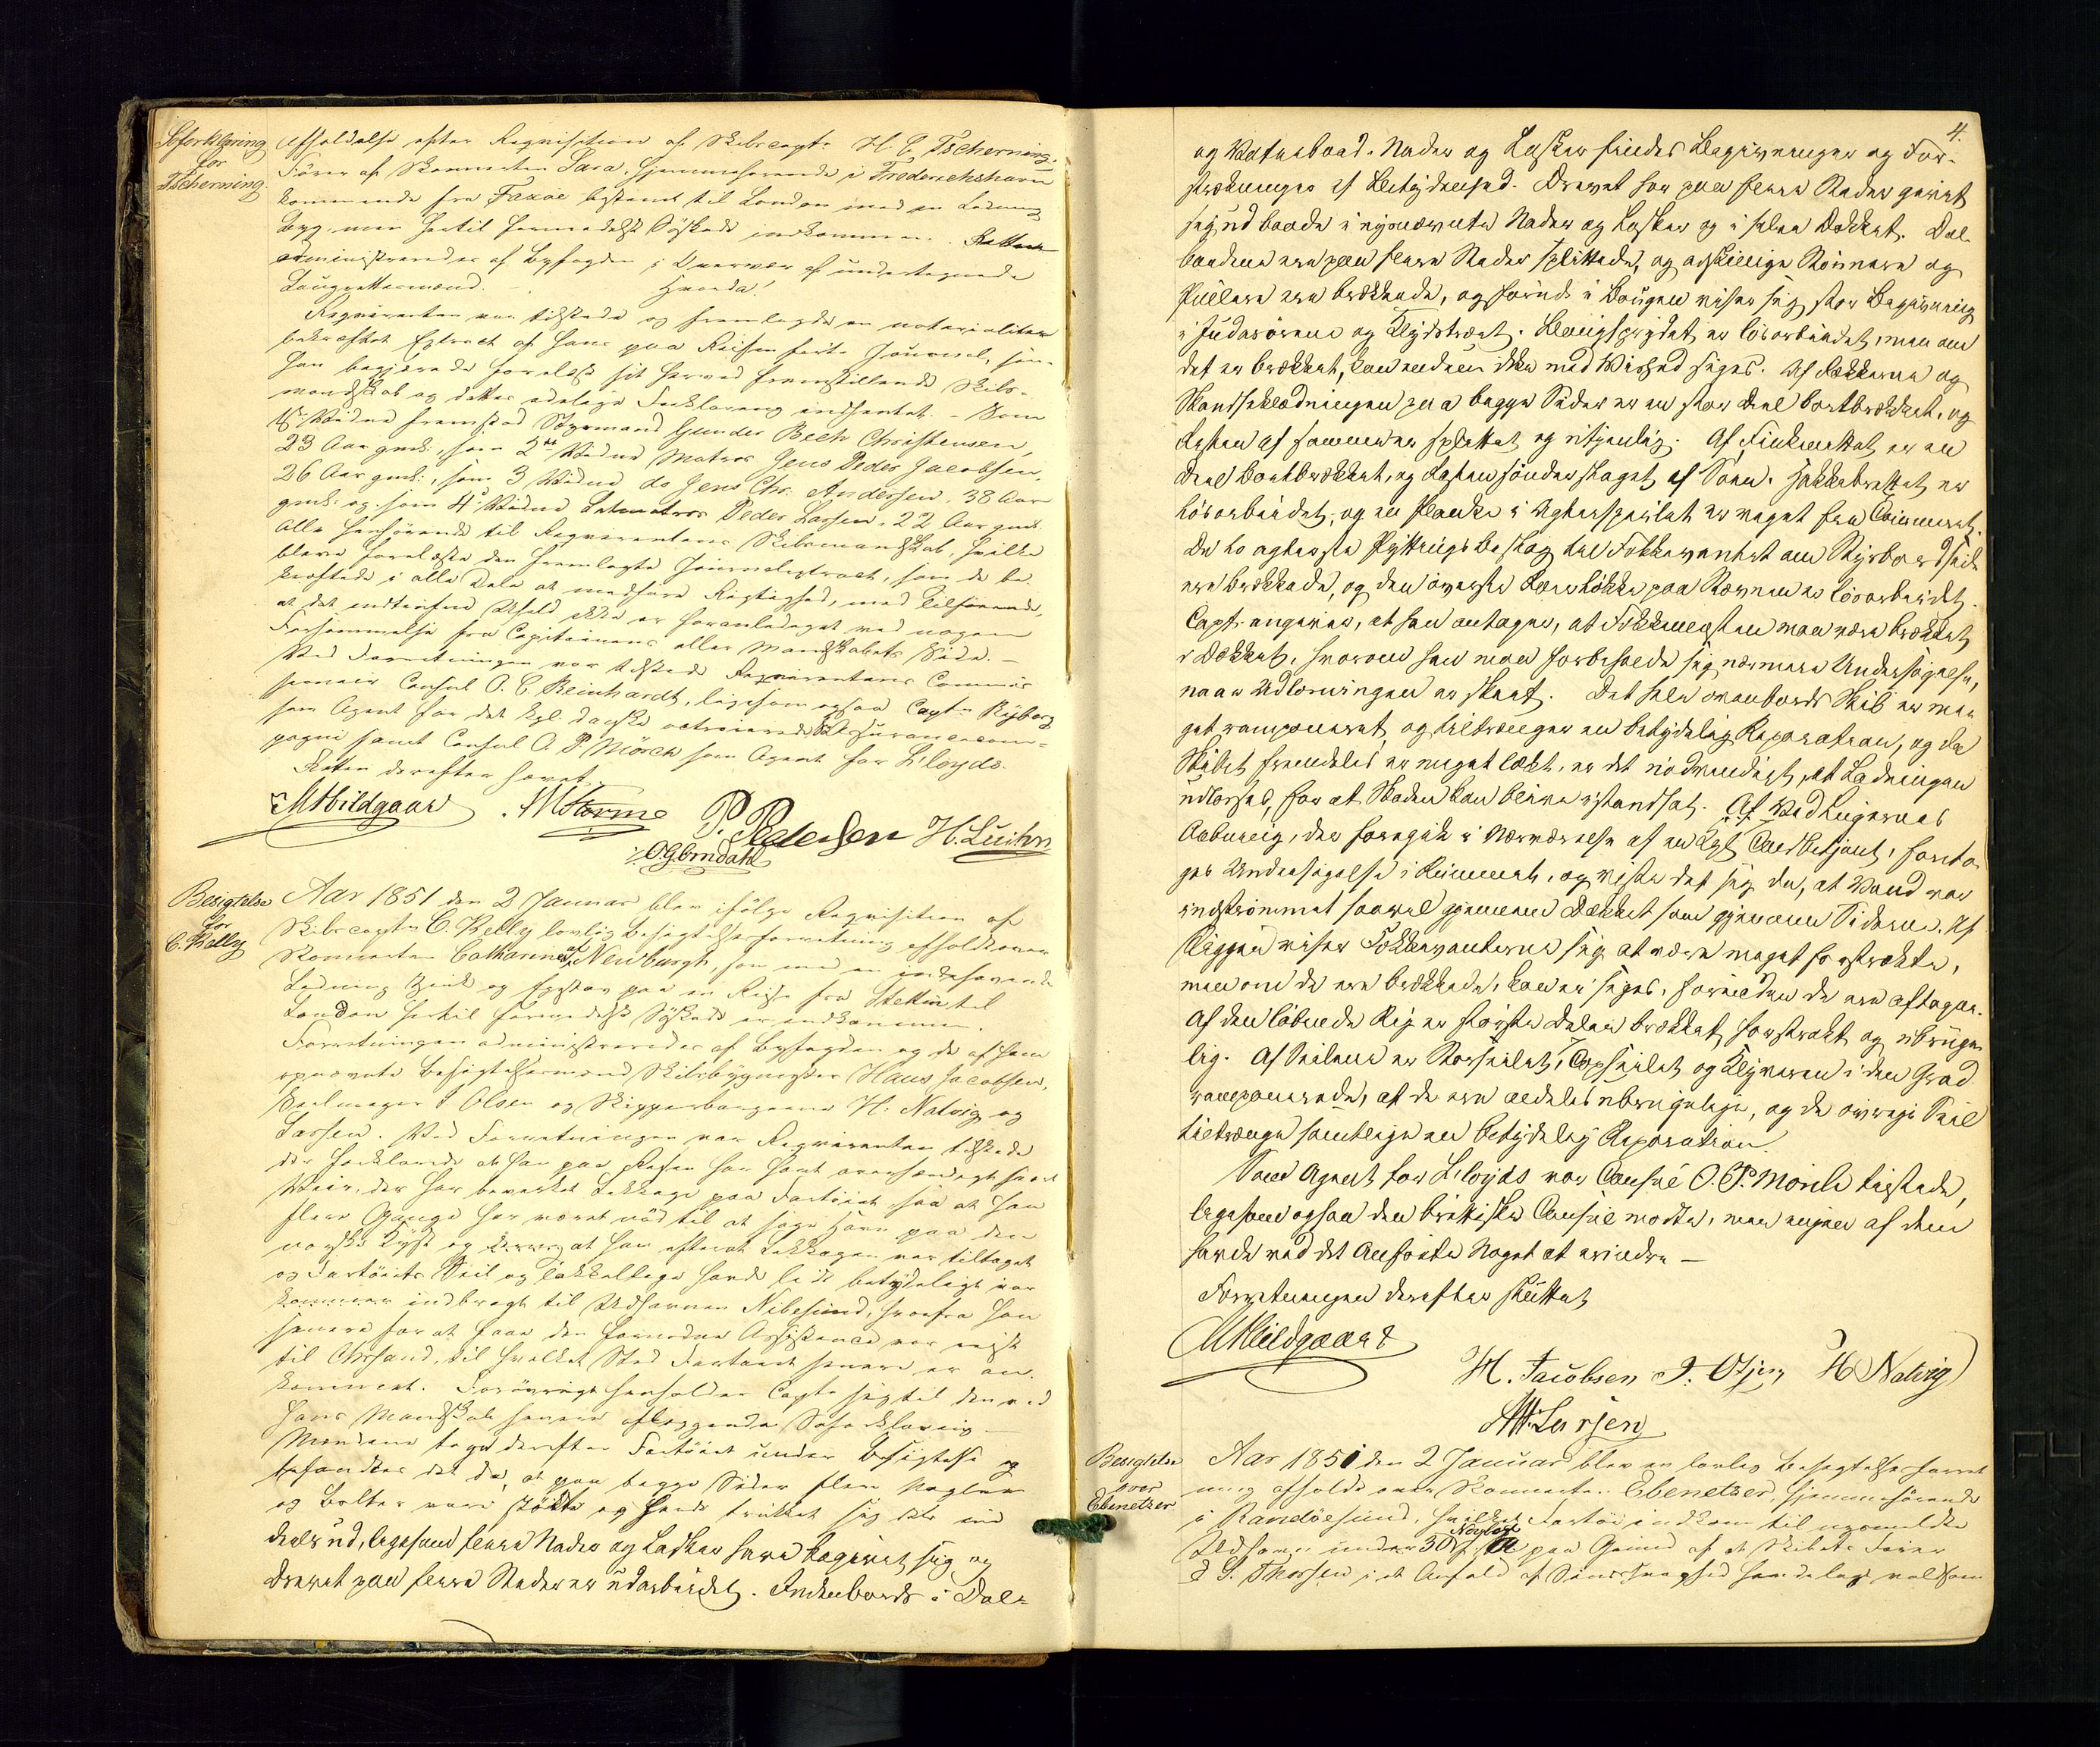 Søforklaring
for
Tscherning.
afholdtes efter Reqvisition af Skibscapt. H. C. Tscherning,
Fører af Skonnerten Sara, hjemmehørende i Frederickshavn
kommende fra Faxøe bestemt til London med en Ladning
Byg men hertil formedelst Søskade indkommen. Retten
administreredes af Byfogden i Overvær af undertegnede
Laugrettesmænd. Hvorda!
Reqvirenten var tilstede og fremlagde en notarialiter
bekræftet Extract af hans paa Reisen førte Journal, som
han begjærede forelæst sit herved fremstillende Skibs-
mandskab og dettes edelige Forklaring indhentet. - Som
1ste Vidne fremstod Styrmand Gunder Bech Christensen,
23 Aar gml., som 2det Vidne Matros Jens Peder Jacobsen,
26 Aar gml., som 3 Vidne do Jens Chr. Andersen, 38 Aar
gml. og som 4de Vidne Letmatros Peder Lassen, 22 Aar gml.
Alle henhørende til Reqvirentens Skibsmandskab, hvilke
bleve forelæste den fremlagte Journalextract, som de be-
kræftede i alle Dele at medføre Rigtighed, med Tilføiende,
at det indtrufne Uheld ikke er foranlediget ved nogen
Forsømmelse fra Capitainens eller Mandskabets Side. -
Ved Forretningen var tilstede Reqvirentens Commis-
sionair Consul O. C. Reinhardt, ligesom ogsaa Captn Ryberg
som Agent for det kgl. danske octroierede Søassurancecom-
pagni samt Consul O. P. Mörch som Agent for Lloyds.
Retten derefter hævet.
MHildgaard NStorme P. Pedersen H. Luihn
O. G. Omdahl
Besigtelse
for
C. Kelly
Aar 1851 den 2 Januar blev ifølge Reqvisition af
Skibscaptn C. Kelly lovlig Besigtelsesforretning afholdt over
Skonnerten Catharine af Newburgh, som med en indehavende
Ladning Zink og Egstav paa en Reise fra Stettin til
London hertil formedelst Søskade er indkommen.
Forretningen administreredes af Byfogden og de af ham
opnævnte Besigtelsesmænd Skibsbygmester Hans Jacobsen,
Seilmager J Olsen og Skipperborgerne H. Natvig og
Larsen. Ved Forretningen var Reqvirenten tilstede
der forklarede at han paa Reisen har havt overhændigt haardt
Veir, der har bevirket Lækkage paa Fartøiet, saa at han
flere Gange har været nød til at søge Havn paa den
norske Kyst og at han efterat Lækkagen var tiltaget
og Fartøiets Seil og Takkellage havde lidt betydeligt var
kommen indbragt til Udhavnen Nibesund, hvorfra han
senere for at faae den fornødne Assistance var reist
til Chrsand, til hvilket Sted Fartøiet senere er an-
kommet. Forøvrigt henholder Captn sig til den ved
hans Mandskab senere afleggende Søforklaring -
Mændene toge derefter Fartøiet under Besigtelse og
befandtes det da, at paa begge Sider flere Nagler
og Bolter vare stødte og havde trukket sig dels ind
deels ud, ligesom flere Nader og Lasker have begivet sig og
Drevet paa flere Steder er udarbeidet. Indenbords i Dæl-
4.
og Vaterbord. Nader og Lasker findes Begivninger og For-
strækninger af Betydenhed. Drevet har paa flere Steder givet
sig ud baade i nysnævnte Nader og Lasker og i selve Dækket. Dæl-
bordene ere paa flere Steder splittede, og adskillige Støinere og
Pullere ere brækkede, og forud i Bougen viser sig stor Begivning
i Judasørene og Klydstræet. Bougsprydet er løsarbeidet, men om
det er brækket, kan endnu ikke med Vished siges. Af Rækkerne og
Skandseklædningen paa begge Sider er en stor Deel bortbrækket, og
Resten af samme er splittet og utjenlig. Af Finknettet er en
Deel bortbrækket, og Resten sønderslaget af Søen. Hakkebrettet er
løsarbeidet, og en Planke i Agterspeilet er veget fra Tømmeret.
De to agterste Pyttingsbeslag til Fokkevantet om Styrbordside
ere brækkede, og den øverste Roerløkke paa Stævnen er løsarbeidet.
Capt. angiver, at han antager, at Fokkemasten maa være brækket
i Dækket, hvorom han maa forbeholde sig nærmere Undersøgelse,
naar Udlosningen er skeet. Det hele ovenbords Skib er me-
get ramponeret og tiltrænger en betydelig Reparation, og da
Skibet fremdeles er meget læk, er det nødvendigt, at Ladningen
udlosses, for at Skaden kan blive istandsat. Af Ved Lugernes
Aabning, der foregik i Nærværelse af en Kgl. Toldbetjent, foreto-
ges Undersøgelse i Rummet, og viste det sig da, at Vand var
indstrømmet saavel gjennem Dækket som gjennem Siderne. Af
Riggen viser Fokkevanterne sig at være meget forstrakte,
men om de ere brækkede, kan ei siges, forinden de ere aftagne.
Af den løbende Rig er største Delen brækket, forstrakt og ubruge-
lig. Af Seilene er Storseilet, Topseilet og Klyveren i den Grad
ramponerede, at de ere aldeles ubrugelige, og de øvrige Seil
tiltrænge samtlige en betydelig Reparation.
Som Agent for Lloyds var Consul O. P. Mörch tilstede,
ligesom ogsaa den brittiske Consul mødte, men ingen af dem
havde ved det Anførte Noget at erindre -
Forretningen derefter sluttet
MHildgaard
H. Jacobsen J. Olsen H Natvig
Larsen
Besigtelse
over
Ebenetzer
Aar 1851 den 2 Januar blev en lovlig Besigtelsesforret-
ning afholdt over Skonnerten Ebenetzer, hjemmehørende
i Randöesund, hvilket Fartøi indkom til nysmeldte
Udhavn under 30 Novbr paa Grund af at Skibets Fører
S. Thorsen i et Anfald af Sindssvaghed havde lagt voldsom